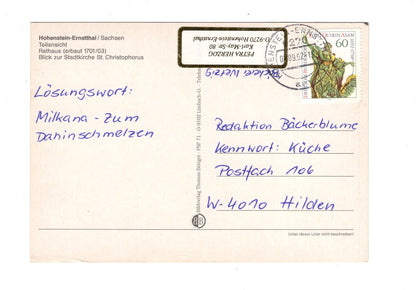 Hohenstein-Ernstthal / Sachsen
Teilansicht
Rathaus (erbaut 1701/03)
Blick zur Stadtkirche St. Christophorus
Lösungswort:
Milkana - zum
Dahinschmelzen
Bildverlag Thomas Böttger - PSF 71 - O-9102 Limbach-O.
PETRA HERZOG
Karl-May-Str. 80
O-9270 Hohenstein-Ernstthal
60
Redaktion Bäckerblume
Kennwort: Küche
Postfach 106
W-4010 Hilden
Unter dieser Linie nicht beschreiben!